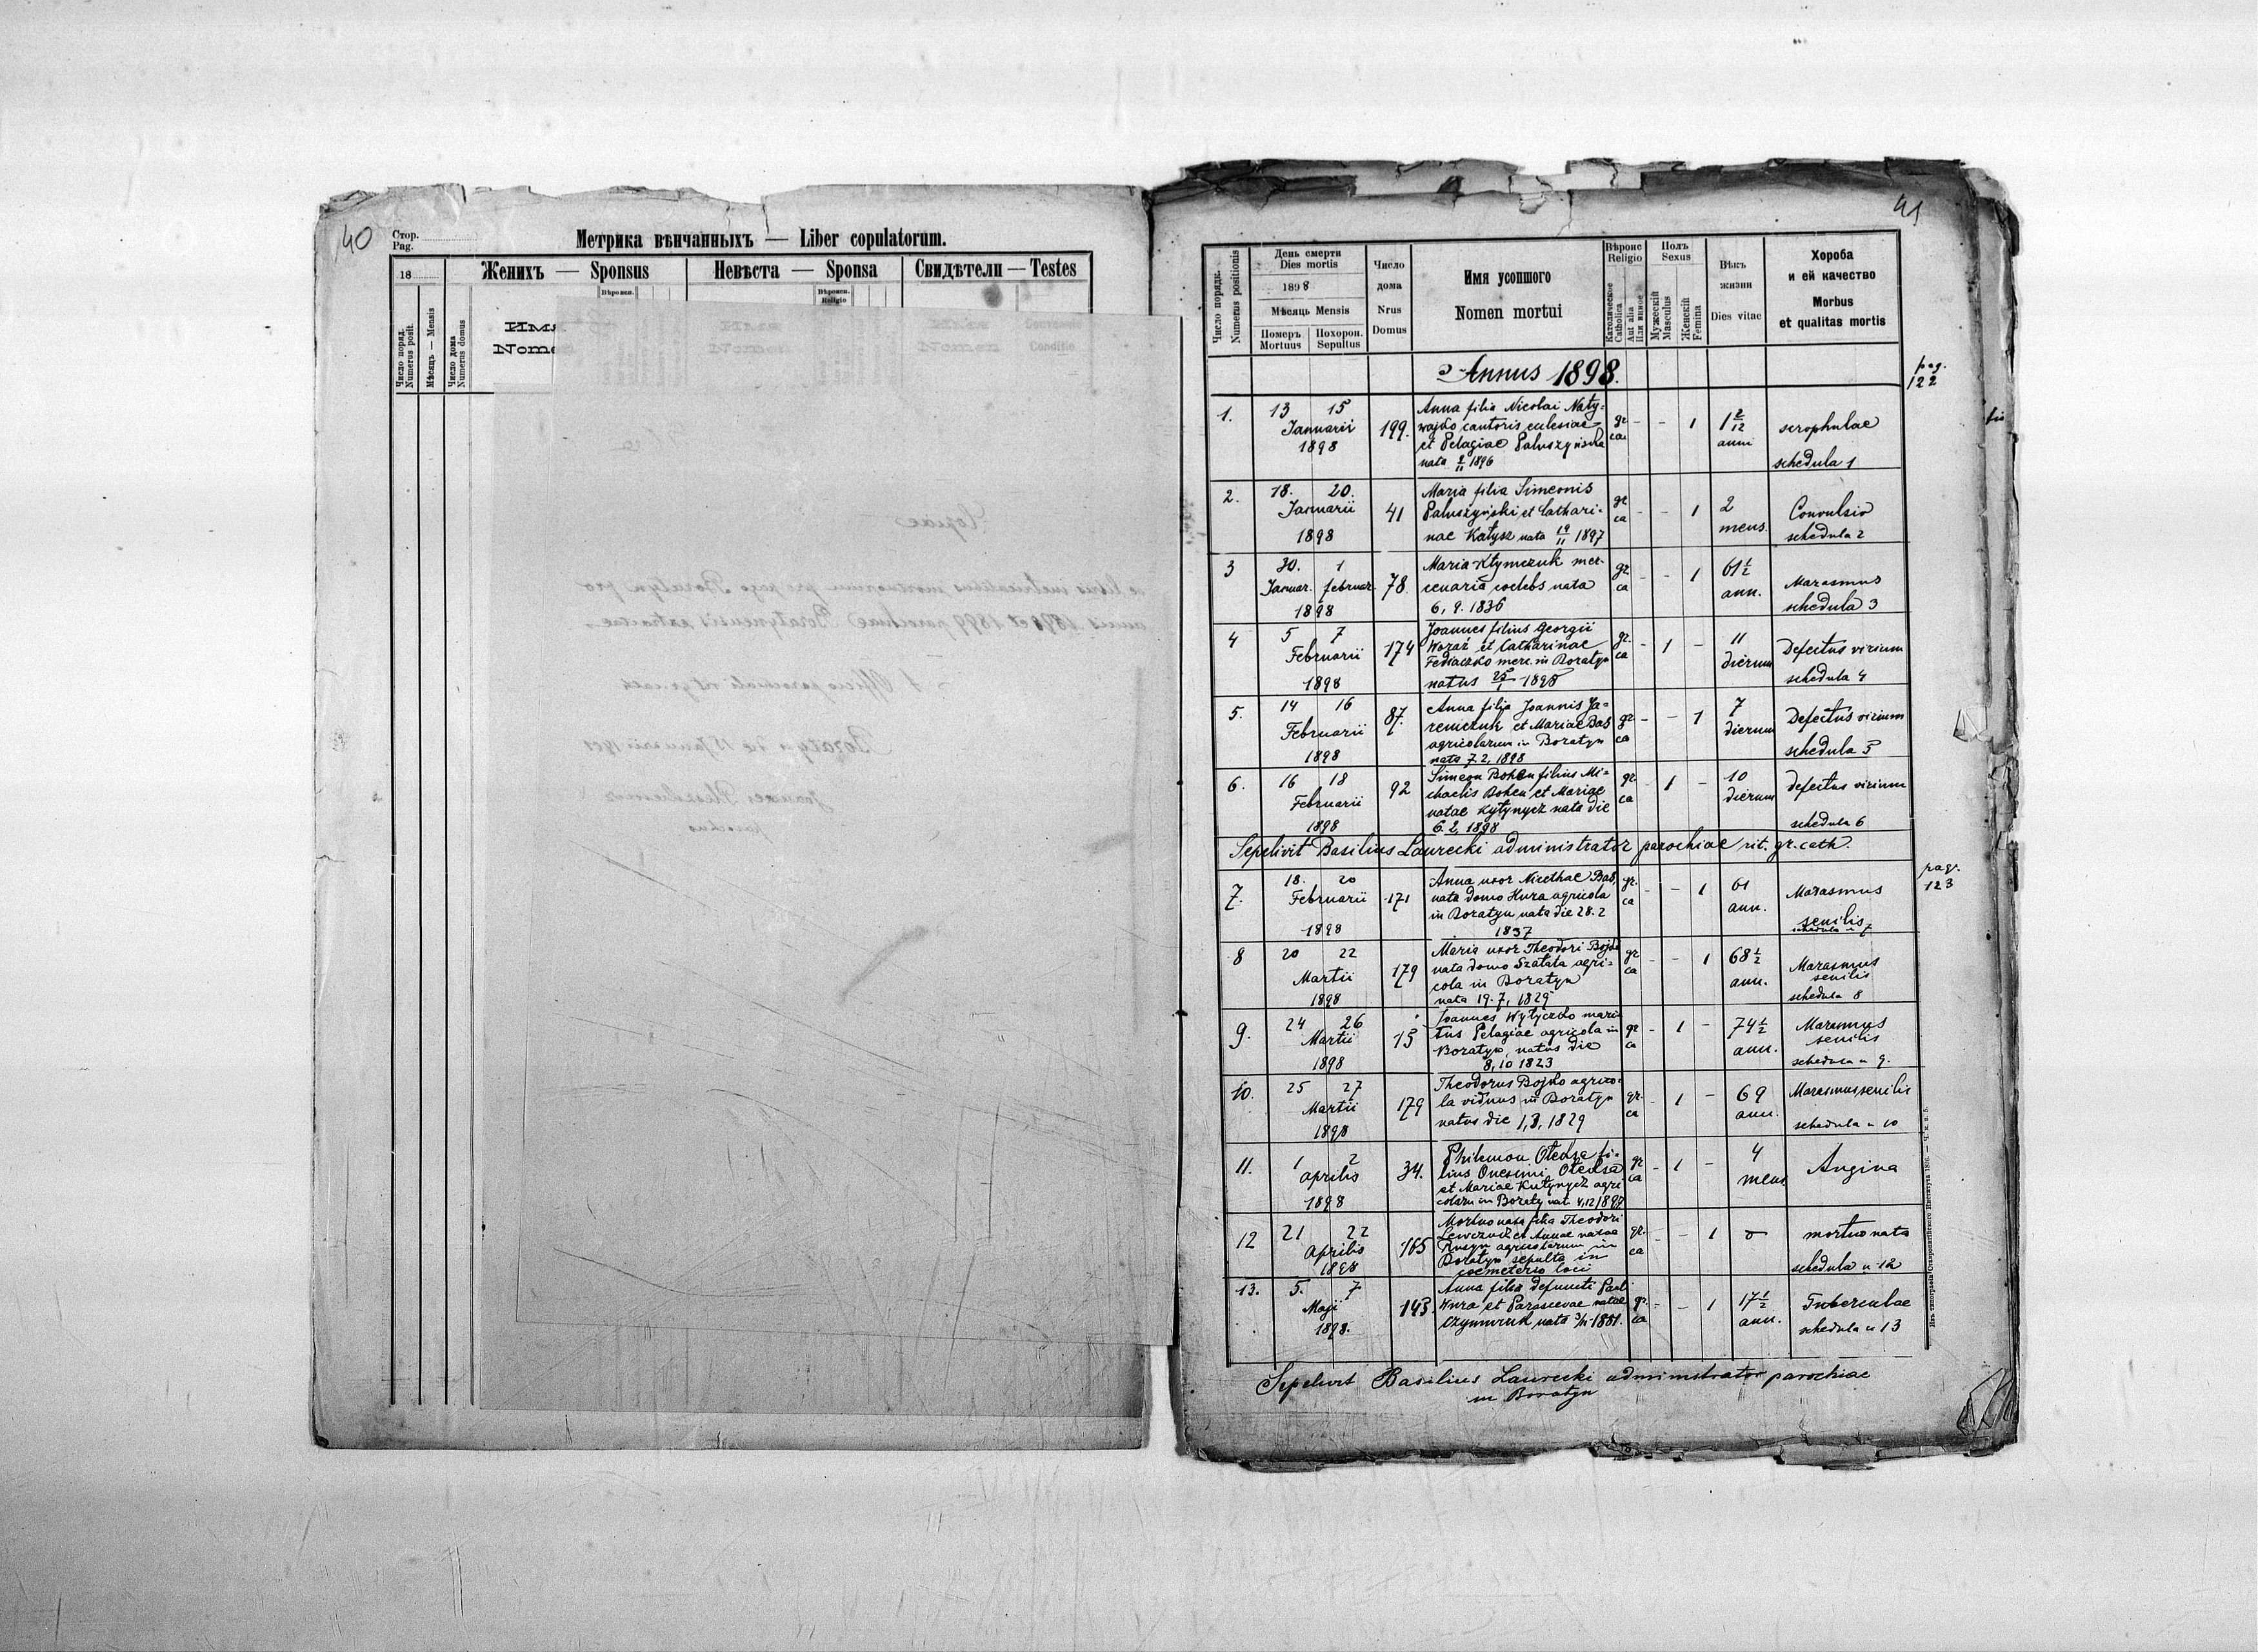 40
Стор.
Pag.
Метрика вѣнчанныхъ — Liber copulatorum.
18
Женихъ — Sponsus
Невѣста — Sponsa
Свидѣтели — Testes
Вѣроисп.
Вѣроисп.
Religio
Число поряд.
Numerus posit.
Мѣсяць — Mensis
Число дома
Numerus domus
Имя
Nomen
Conditio
Copiae
Joannes
parochus
41
Число порядк.
Numerus positionis
День смерти
Dies mortis
1898
Мѣсяць Mensis
Померъ
Mortuus
Похорон.
Sepultus
Число
дома
Nrus
Domus
Имя усопшого
Nomen mortui
Вѣроис
Religio
Католическое
Catholica
Aut alia
Или иное
Полъ
Sexus
Мужескій
Masculus
Женскій
Femina
Вѣкъ
жизни
Dies vitae
Хороба
и ей качество
Morbus
et qualitas mortis
Annus 1898.
pag.
122
1. 13 15 Januarii 1898 199. Anna filia Nicolai Naty=
wajko cantoris ecclesiae
et Pelagiae Paluszyńska
nata 2/11 1896
gr ca - - 1 1 2/12 anni scrophulae
schedula 1
2. 18. 20. Januarii 1898 41 Maria filia Simeonis
Paluszyński et Cathari-
nae Katysz nata 19/11 1897
gr ca - - 1 2 mens. Convulsio
schedula 2
3 30. 1 Januar. februar. 1898 78. Maria Klymczuk mer-
cenaria coelebs nata
6, 9. 1836
gr ca - - 1 61 1/2 ann. Marasmus
schedula 3
4 5 7 Februarii 1898 174 Joannes filius Georgii
Woraź et Catharinae
Fediaczko merc. in Boratyn
natus 25/1 1898
gr. ca - 1 - 11 dierum Defectus virium
schedula 4
5. 14 16 Februarii 1898 87. Anna filia Joannis Ja=
remczuk et Mariae Bas
agricolarum in Boratyn
nata 7. 2, 1898
gr ca - - 1 7 dierum Defectus virium
schedula 5
6. 16 18 Februarii 1898 92 Simeon Bohen filius Mi=
chaelis Bohen et Mariae
natae Kytynycz nata die
6. 2, 1898
gr. ca 1 - 10 dierum Defectus virium
schedula 6
Sepelivit Basilius Laurecki administrator parochiae rit. gr. cath.
pag.
123
7. 18. 20 Februarii 1898 171 Anna uxor Nicethae Bas,
nata domo Hura agricola
in Boratyn nata die 28. 2
1837
gr. ca - - 1 61 ann. Marasmus
senilis
schedula n 7
8 20 22 Martii 1898 179 Maria uxor Theodori Bojko
nata domo Szatala agri=
cola in Boratyn
nata 19. 7, 1829
gr ca - - 1 68 1/2 ann. Marasmus
senilis
schedula 8
9. 24 26 Martii 1898 15 Joannes Wytyczko mari
tus Pelagiae agricola in
Boratyn, natus die
8, 10 1823
gr ca - 1 - 74 1/2 ann. Marasmus
senilis
schedula n 9.
10. 25 27 Martii 1898 179 Theodorus Bojko agrico-
la viduus in Boratyn
natus die 1, 3, 1829
gr. ca - 1 - 69 ann. Marasmus senilis
schedula n 10
11. 1 2 Aprilis 1898 34. Philemon Oleksa fi-
lius Onesimi Oleksa
et Mariae Kutynycz agri
colaru in Boratyn nat 4, 12 1897
gr ca - 1 - 4 mens Angina
12 21 22 Aprilis 1898 165 Mortuo nata filia Theodori
Lewczuk et Annae natae
Rusyn agricolarum in
Boratyn sepulta in
coemeterio loci
gr. ca - - 1 mortuo nata
schedula n 12
13. 5. 7 Maji 1898. 143. Anna filia defuncti Pauli
Wura et Parascevae natae
nata 3/11 1881.
gr. ca - - 1 17 1/2 ann. Tuberculae
schedula n 13
Sepelivit Basilius Laurecki administrator parochiae
in Boratyn